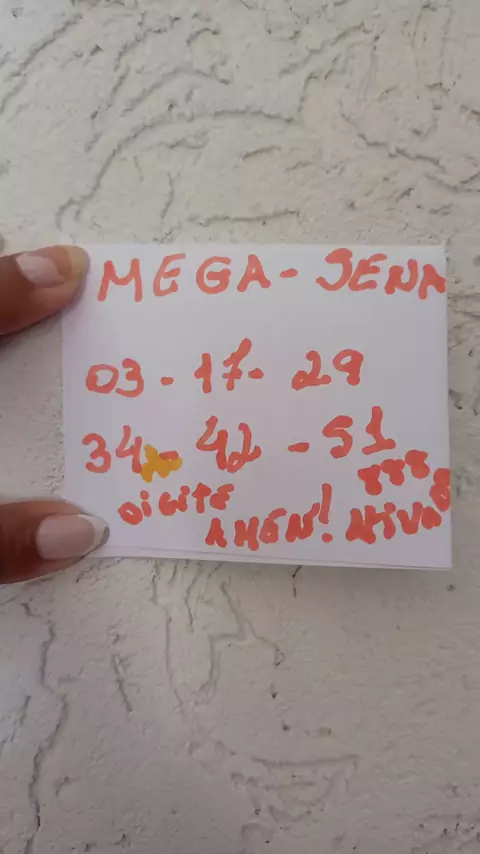 MEGA-SENA
03-17-29
34-42-51
DIGITE AMÉN! ATIVA
888
8